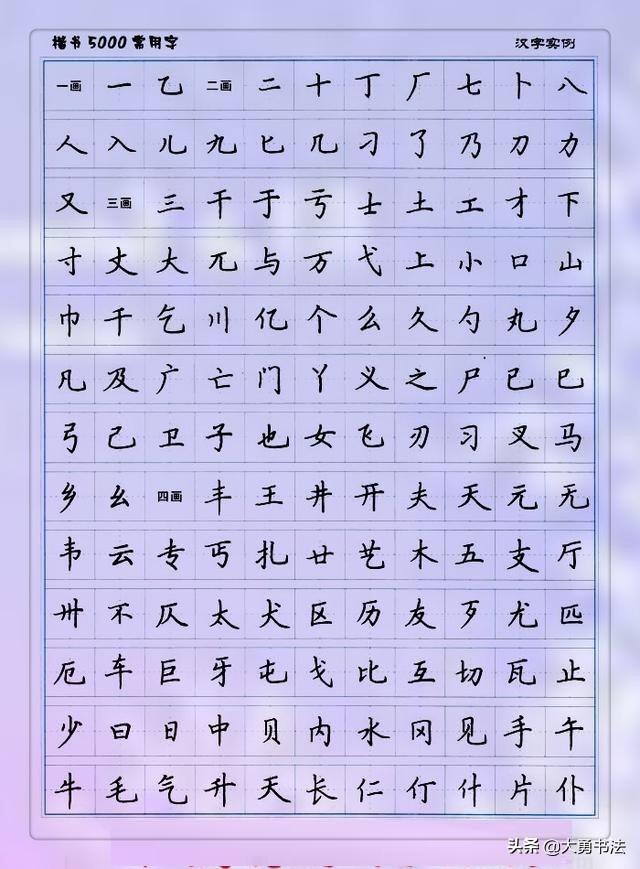 楷书5000常用字 汉字实例
一画 一 乙 二画 二 十 丁 厂 七 卜 八
人 入 儿 九 匕 几 刁 了 乃 刀 力
又 三画 三 干 于 亏 士 土 工 才 下
寸 丈 大 兀 与 万 弋 上 小 口 山
巾 千 乞 川 亿 个 么 久 勺 丸 夕
凡 及 广 亡 门 丫 义 之 尸 已 巳
弓 己 卫 子 也 女 飞 刃 习 叉 马
乡 幺 四画 丰 王 井 开 夫 天 元 无
韦 云 专 丐 扎 廿 艺 木 五 支 厅
卅 不 仄 太 犬 区 历 友 歹 尤 匹
厄 车 巨 牙 屯 戈 比 互 切 瓦 止
少 曰 日 中 贝 内 水 冈 见 手 午
牛 毛 气 升 天 长 仁 仃 什 片 仆
头条 @大勇书法